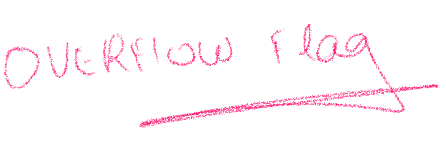 OVERFLOW Flag